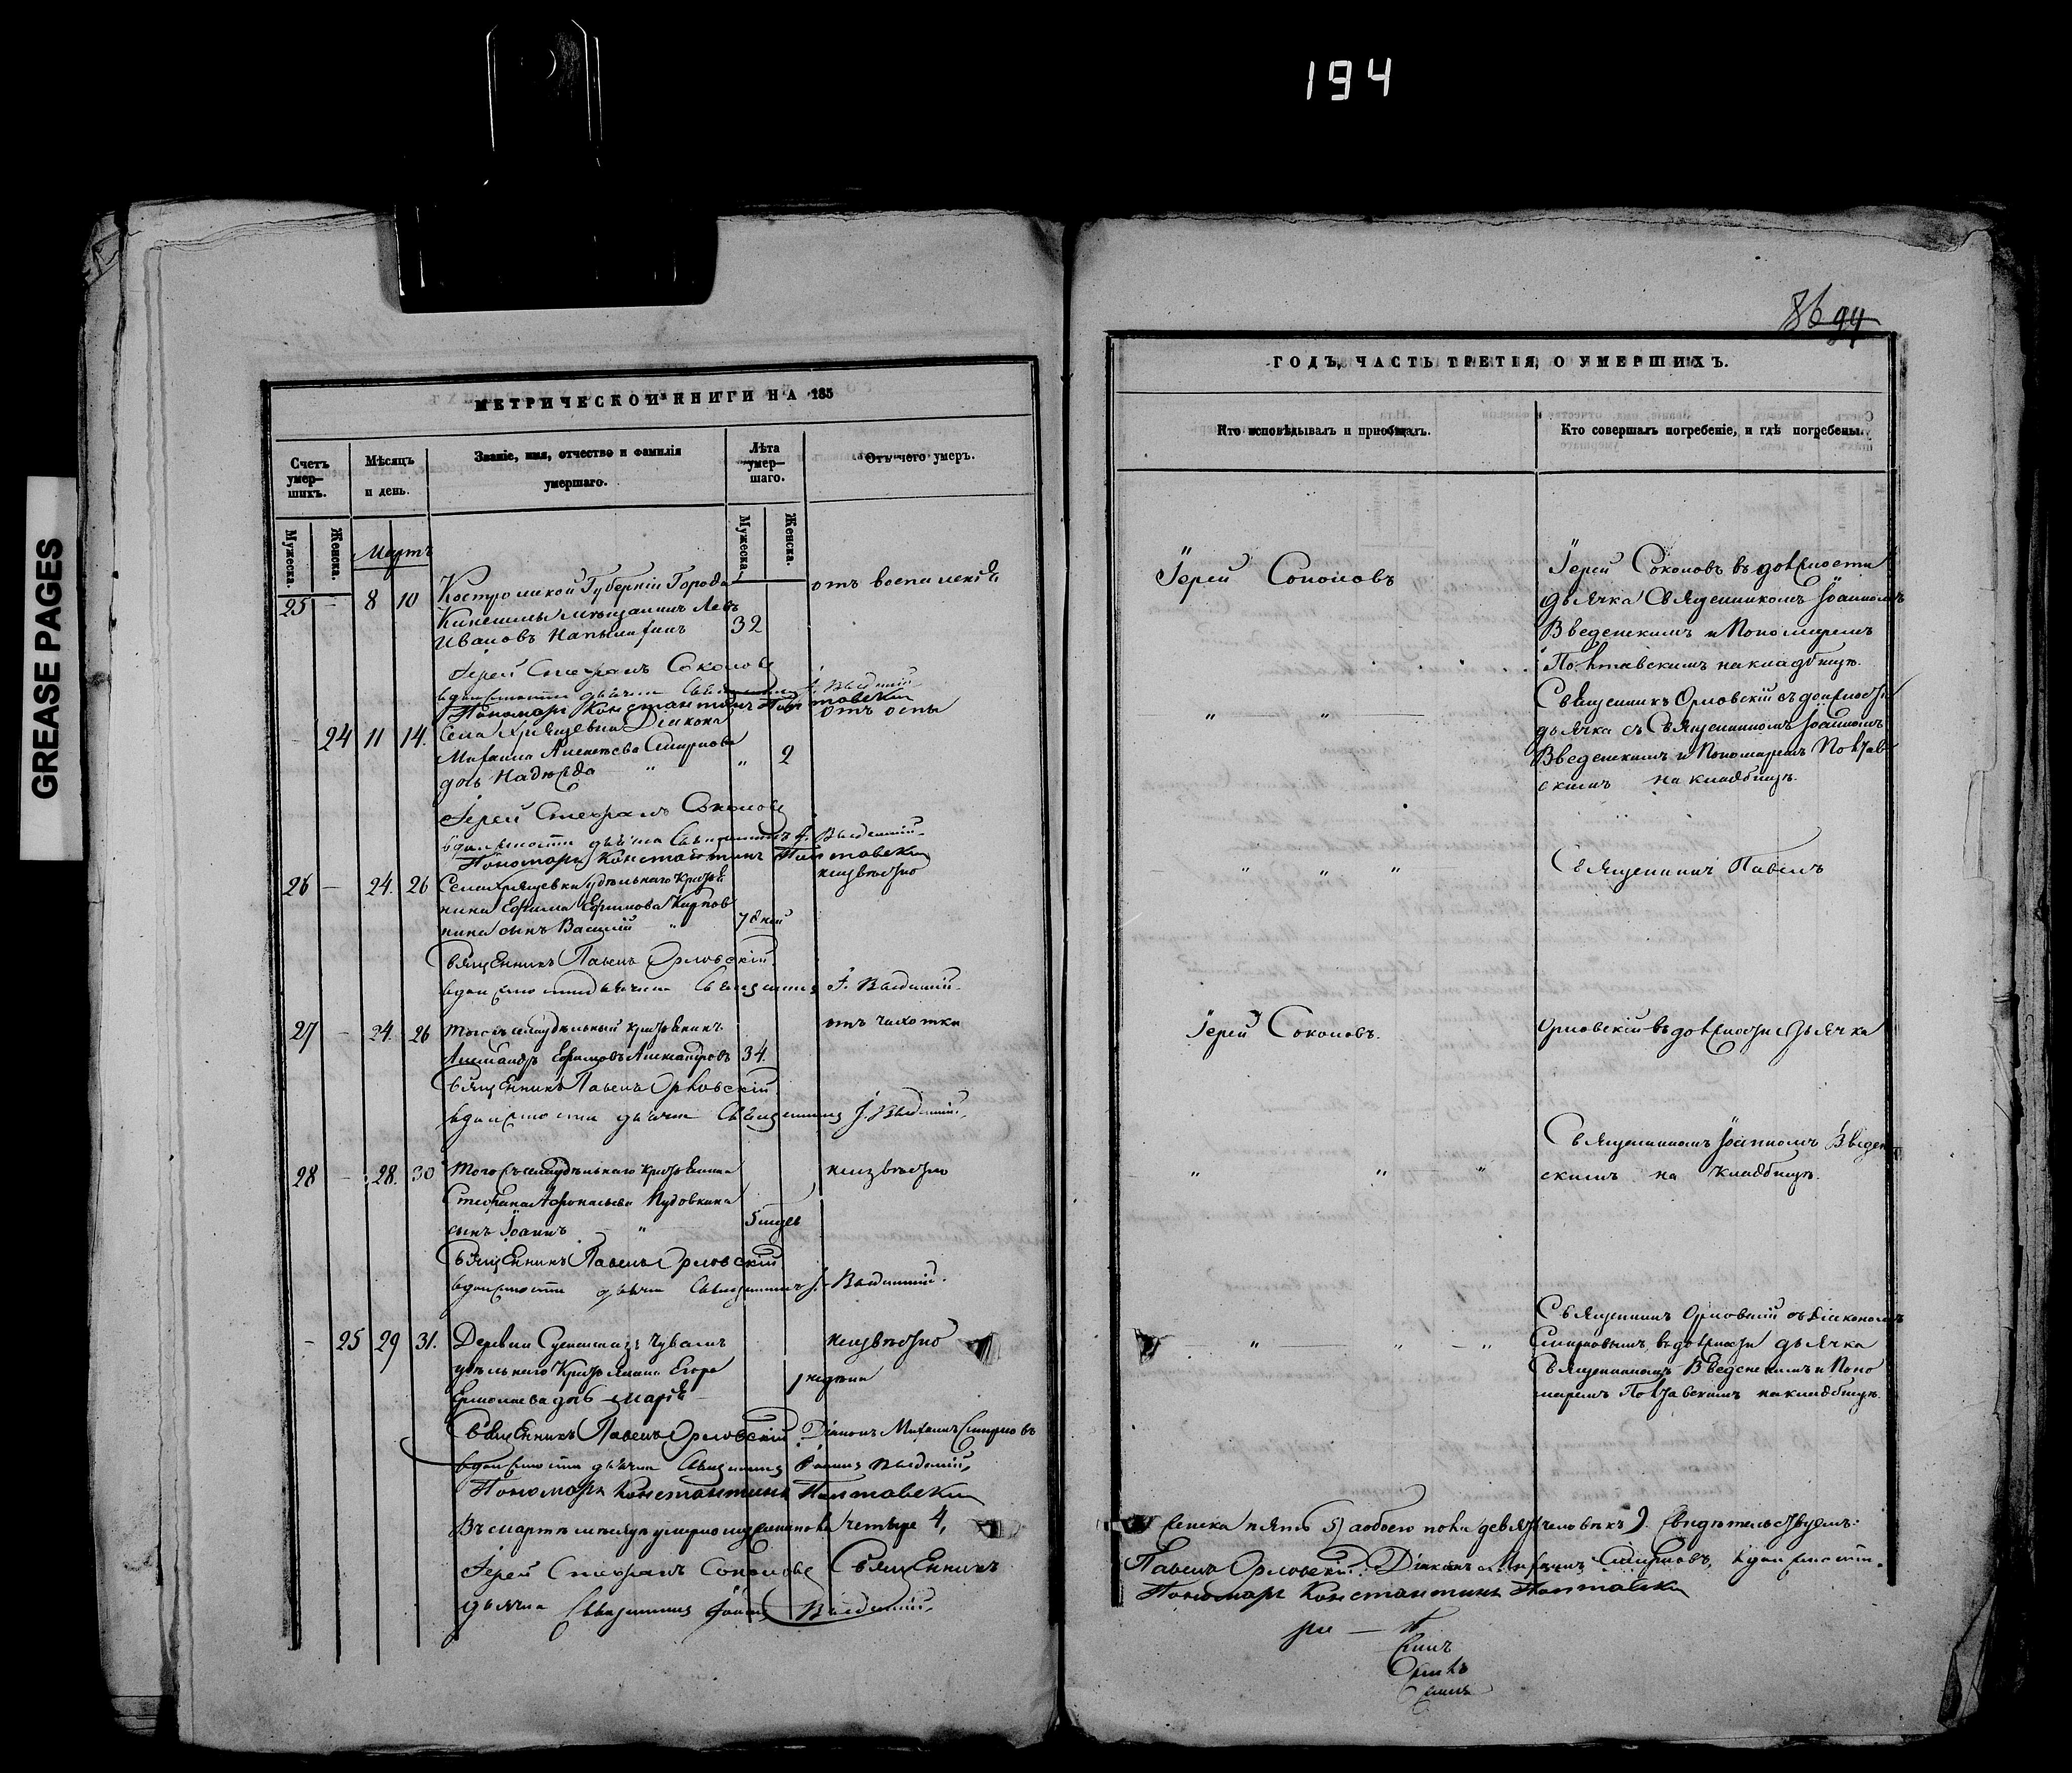 194
GREASE PAGES
86 94
МЕТРИЧЕСКОЙ КНИГИ НА 185
Счетъ умер-шихъ.
Мѣсяцъ и день.
Званіе, имя, отчество и фамилія умершаго.
Лѣта умер-шаго.
Отъ чего умеръ.
Мужеска.
Женска.
Мужеска.
Женска.
Мартъ
25 — 8 10 Костромской Губерніи Города отъ воспаленія
Кинешмы мѣщанинъ Левъ
Ивановъ 32
Іерей Стефанъ Соколовъ
въ должности дьячка Священникъ І. Введенскій
Пономарь Константинъ Полтавскій
24 11 14. Села Хрящевки Діакона отъ оспы
Михаила Алексѣева Смирнова
дочь Надежда " " 2
Іерей Стефанъ Соколовъ
въ должности дьячка Священникъ І. Введенскій.
Пономарь Константинъ Полтавскій
26 — 24. 26 Села Хрящевки удѣльнаго крестья неизвѣстно
нина Ефима Ефимова
сынъ Василій " 7 дней
Священникъ Павелъ Орловскій.
въ должности дьячка Священникъ І. Введенскій.
27 — 24. 26 Тогоже села удѣльный крестьянинъ отъ чахотки
Александръ Ефимовъ Александровъ 34.
Священникъ Павелъ Орловскій.
въ должности дьячка Священникъ І. Введенскій.
28 — 28. 30 Того же села удѣльнаго крестьянина неизвѣстно
Стефана Афонасьева Пудовкина
сынъ Іоаннъ — " 5 мцев
Священникъ Павелъ Орловскій
въ должности дьячка Священникъ І. Введенскій.
— 25 29 31. Деревни Чувашъ неизвѣстно
удѣльнаго Крестьянина Егора
Ермолаева дочь Марія — 1 недѣли
Священникъ Павелъ Орловскій. Діаконъ Михаилъ Смирновъ
въ должности дьячка Священникъ Іоаннъ Введенскій,
Пономарь Константинъ Полтавскій
Въ мартѣ мѣсяцѣ умерло четыре 4,
Іерей Стефанъ Соколовъ Священникъ
дьячка Священникъ Іоаннъ Введенскій.
ГОДЪ, ЧАСТЬ ТРЕТІЯ, О УМЕРШИХЪ.
Кто исповѣдывалъ и пріобщалъ.
Кто совершалъ погребеніе, и гдѣ погребены.
Іерей Соколовъ
Іерей Соколовъ въ должности
дьячка Священникомъ Іоанномъ
Введенскимъ и Пономаремъ
Полтавскимъ на кладбищѣ.
" — " —
Священникъ Орловскій въ должности
дьячка съ Священникомъ Іоанномъ
Введенскимъ и Пономаремъ Полтав
скимъ на кладбищѣ.
" " "
Священникъ Павелъ
Іерей Соколовъ.
Орловскій въ должности дьячка
" " — "
Священникомъ Іоанномъ Введен
скимъ на кладбищѣ.
— " — " — "
Священникъ Орловскій съ Діакономъ
Смирновымъ, въ должности дьячка
Священникомъ Введенскимъ и Поно
маремъ Полтавскимъ на кладбищѣ.
женска пять 5, а обоего пола девять человѣкъ 9. Свидѣтельствуемъ:
Павелъ Орловскій. Діаконъ Михаилъ Смирновъ, въ должности
Пономарь Константинъ Полтавскій